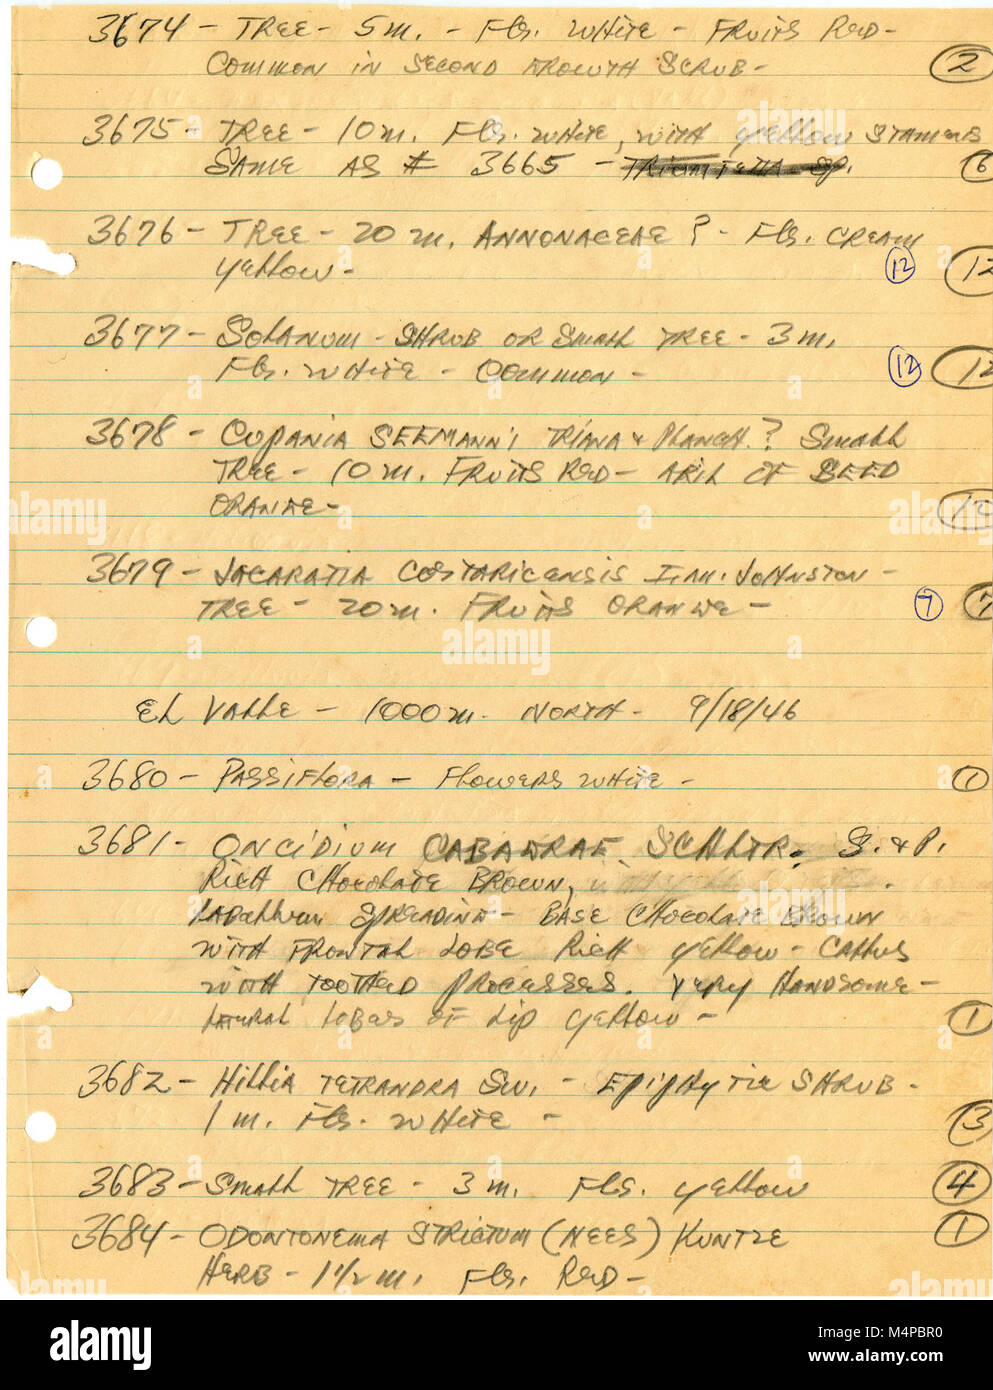 3674 - TREE - 5 m. - Fls. WHITE - FRUITS RED -
COMMON IN SECOND GROWTH SCRUB - 2
3675 - TREE - 10 m. Fls. WHITE, WITH YELLOW STAMENS
SAME AS # 3665 - 6
3676 - TREE - 20 m. ANNONACEAE ? - Fls. CREAM
YELLOW - 12 12
3677 - SOLANUM - SHRUB OR SMALL TREE - 3 m.
Fls. WHITE - COMMON - 12 12
3678 - CUPANIA SEEMANNI TRIANA & PLANCH. ? SMALL
TREE - 10 m. FRUITS RED - ARIL OF SEED
ORANGE - 12
3679 - JACARATIA COSTARICENSIS I.M. JOHNSTON -
TREE - 20 m. FRUITS ORANGE - 7 7
EL VALLE - 1000 m. NORTH - 9/18/46
3680 - PASSIFLORA - FLOWERS WHITE - 1
3681 - ONCIDIUM CABAGRAE SCHLTR. S. & P.
RICH CHOCOLATE BROWN,
LABELLUM SPREADING - BASE CHOCOLATE BROWN
WITH FRONTAL LOBE RICH YELLOW - CALLUS
WITH TOOTHED PROCESSES. VERY HANDSOME -
LATERAL LOBES OF LIP YELLOW - 1
3682 - HILLIA TETRANDRA SW. - EPIPHYTIC SHRUB -
1 m. Fls. WHITE - 3
3683 - SMALL TREE - 3 m. Fls. YELLOW 4
3684 - ODONTONEMA STRICTUM (NEES) KUNTZE 1
HERB - 1 1/2 m. Fls. RED -
alamy
Image ID: M4PBR0
www.alamy.com